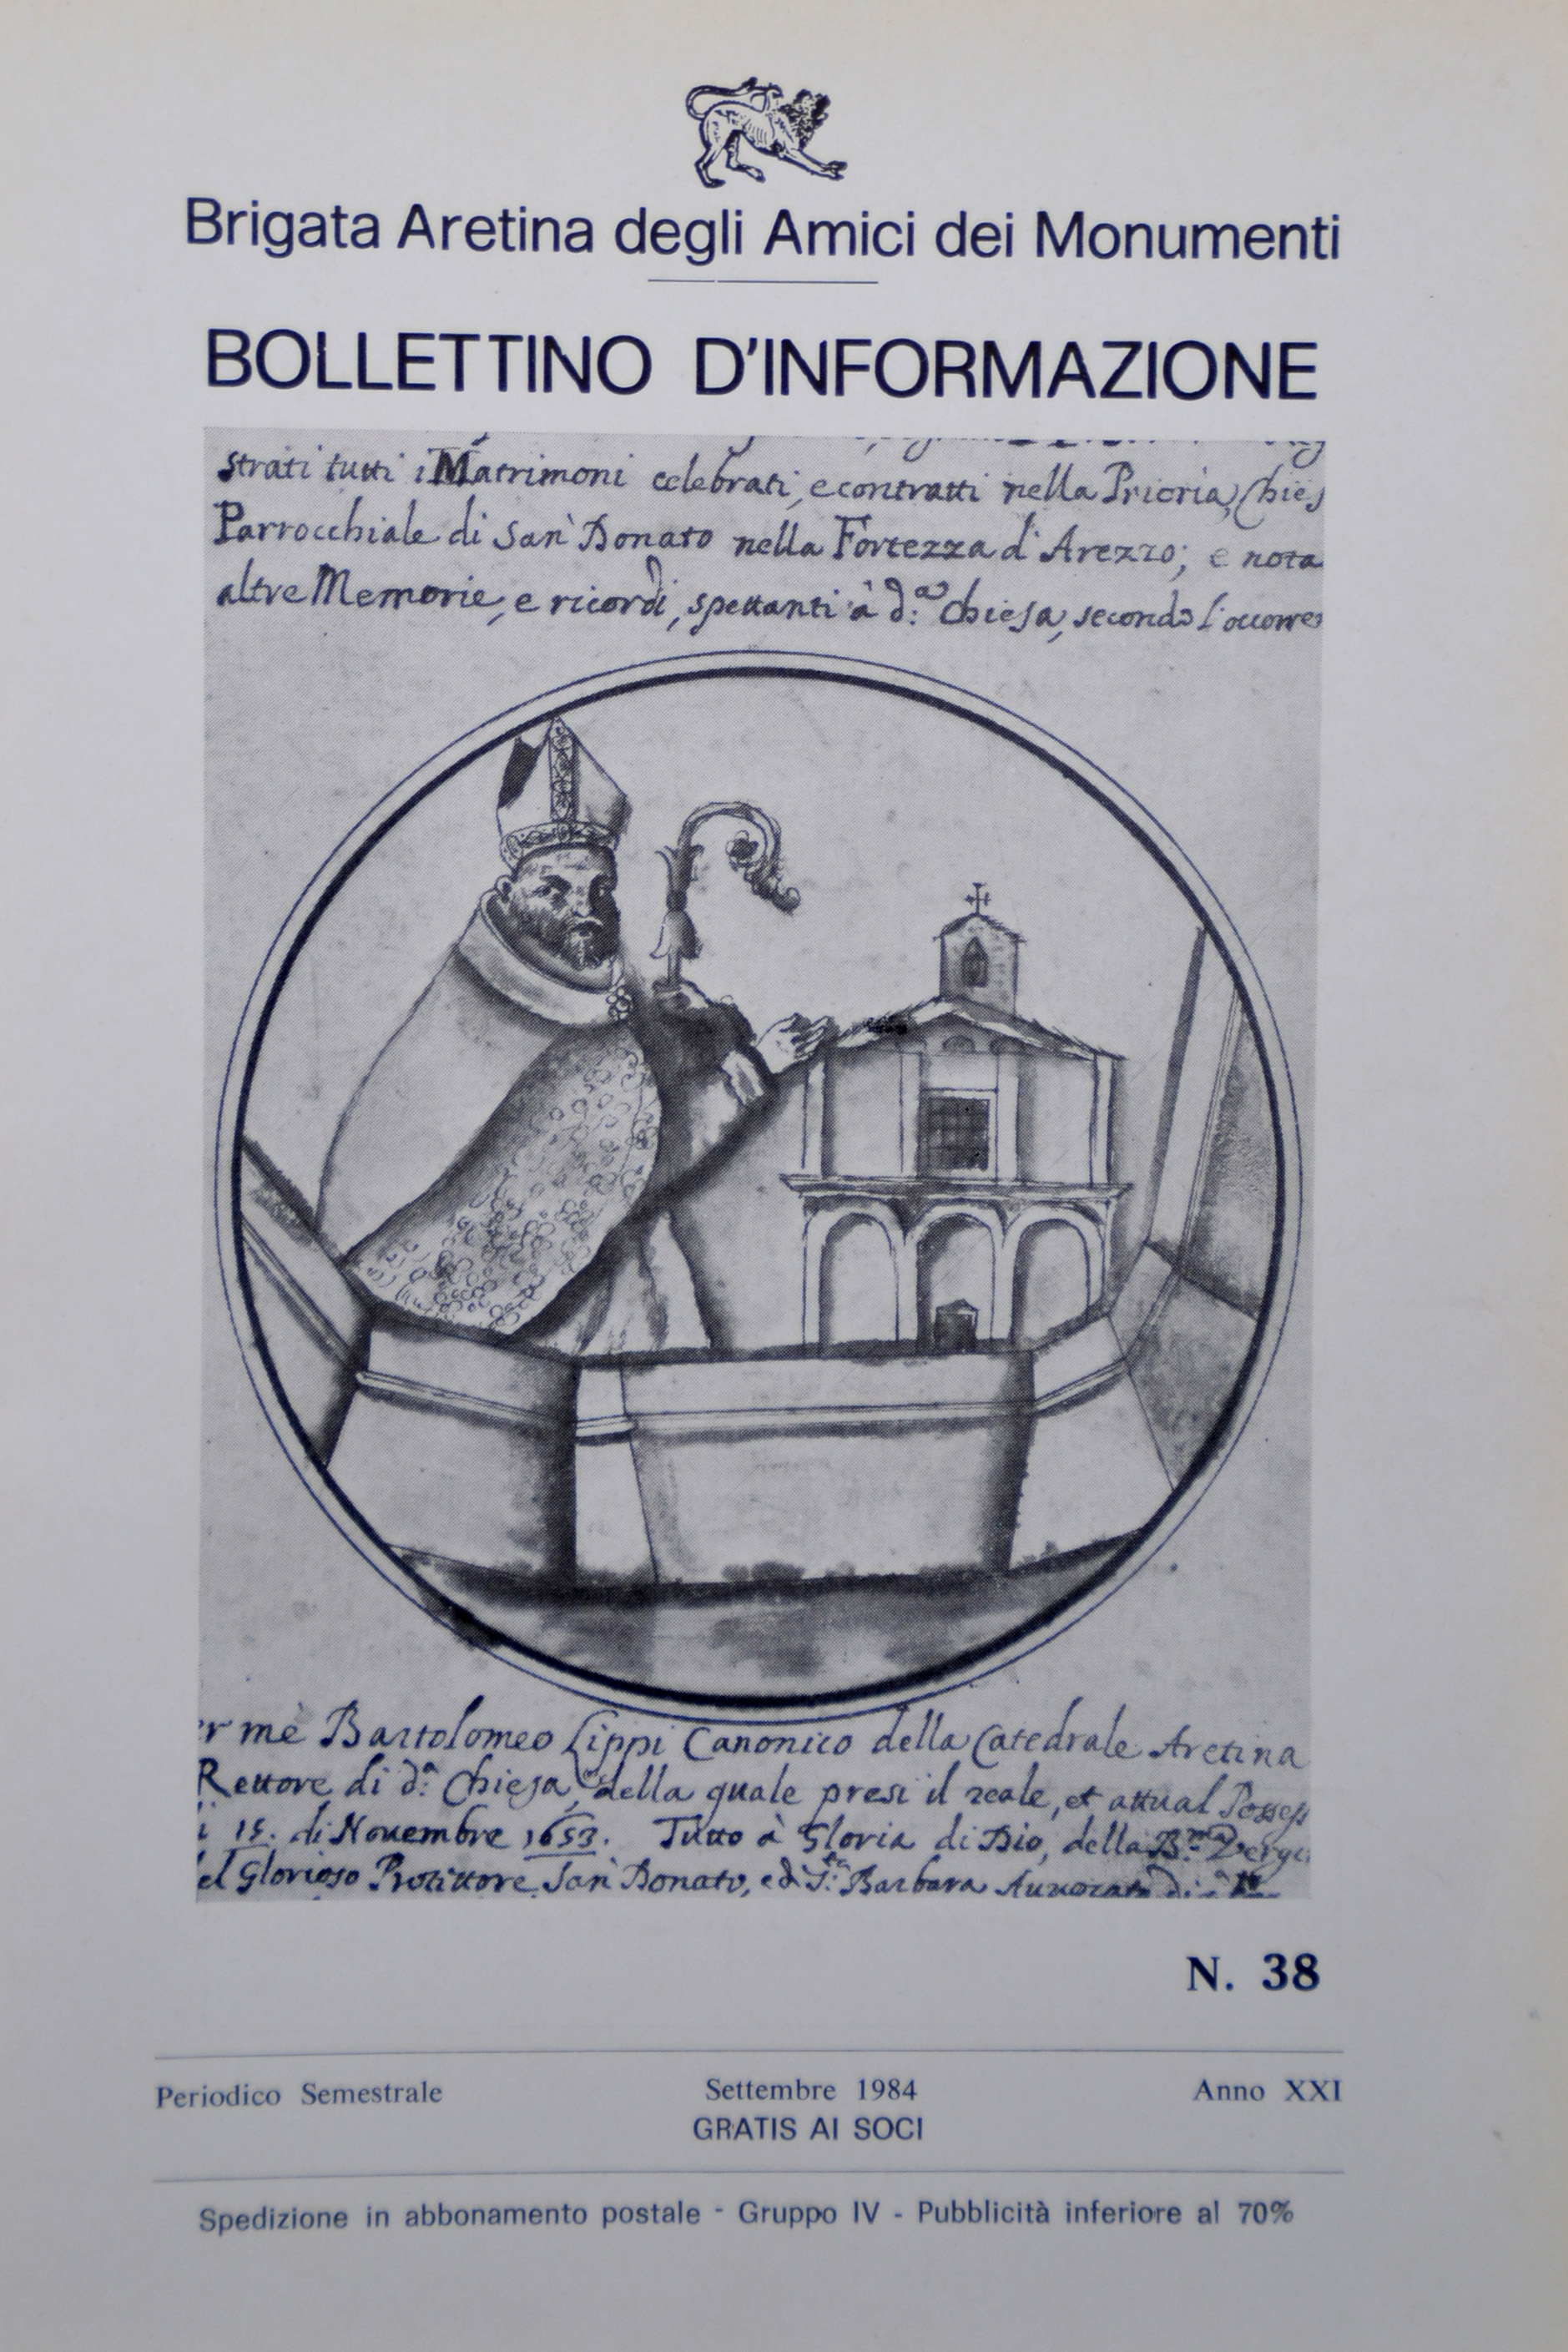 Brigata Aretina degli Amici dei Monumenti
BOLLETTINO D'INFORMAZIONE
strati tutti i Matrimoni celebrati, e contratti nella Prioria, Chies
Parrocchiale di San Donato nella Fortezza d'Arezzo; e nota
altre Memorie, e ricordi, spettanti à d.ª Chiesa, secondo l'occorre
er mè Bartolomeo Lippi Canonico della Catedrale Aretina
Rettore di d.ª Chiesa, della quale presi il reale, et attual Possess
i 15. di Novembre 1653. Tutto à Gloria di Dio, della B.ma Vergi
el Glorioso Protittore San Donato, ed S.ta Barbara
N. 38
Periodico Semestrale Settembre 1984 Anno XXI
GRATIS AI SOCI
Spedizione in abbonamento postale - Gruppo IV - Pubblicità inferiore al 70%